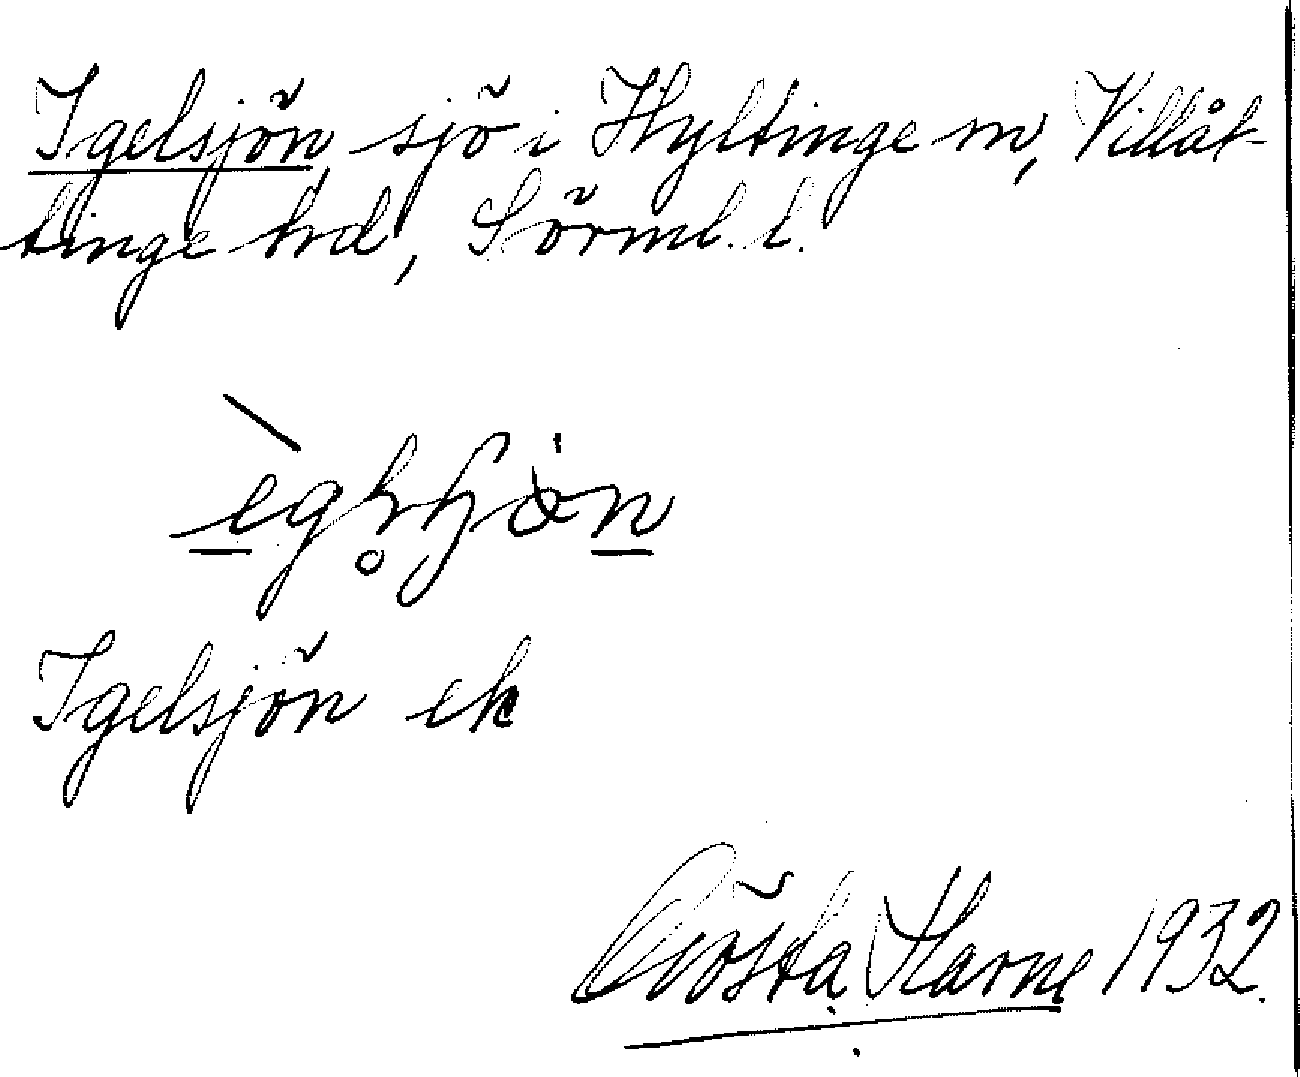 Igelsjön sjö i Hyltinge sn, Villåt-
tinge hd, Sörml. l.
Igelsjön ek
Gösta 1932.